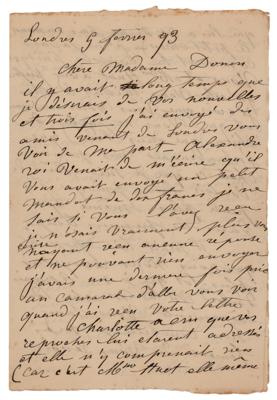 Londres 9 fevrier 93
Chère Madame Donon
il y avait long temps que
je désirais de vos nouvelles
et trois fois j'ai envoyé des
amis venant de Londres vous
voir de me part — Alexandre
roi venait de m'écrire qu'il
vous avait envoyé un petit
mandat de dix francs je ne
sais si vous l'avez recu
je n'osais vraiment plus vous
écrire
n'ayant recu aucune reponse
et ne pouvant rien envoyer
j'avais une derniere fois prié
un camarade d'aller vous voir
quand j'ai recu votre lettre
Charlotte a cru que ces
reproches lui étaient adressés
et elle n'y comprenait rien
(car c'est Mme elle meme